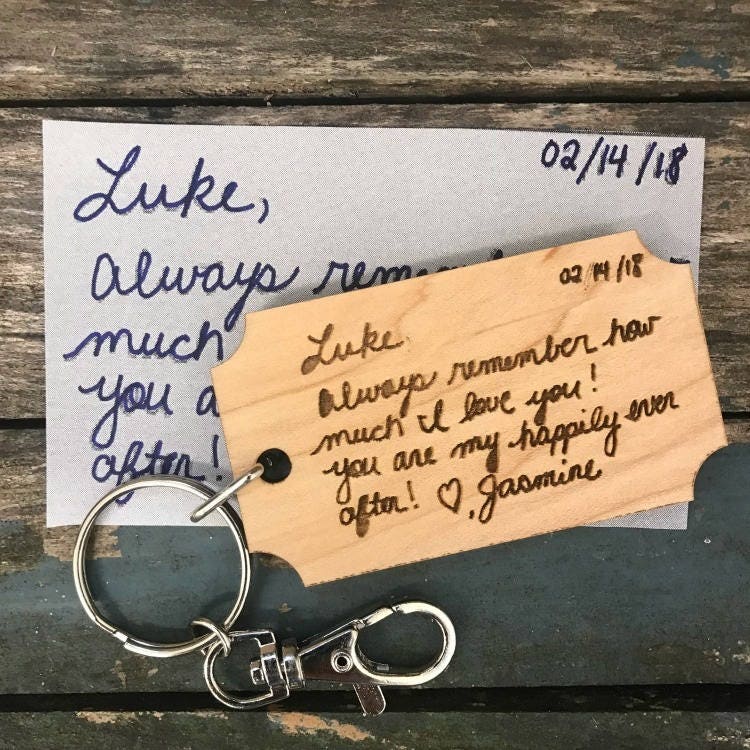 02/14/18
Luke,
Always remem
much
you a
after!
02/14/18
Luke,
Always remember how
much I love you!
you are my happily ever
after! ♡, Jasmine